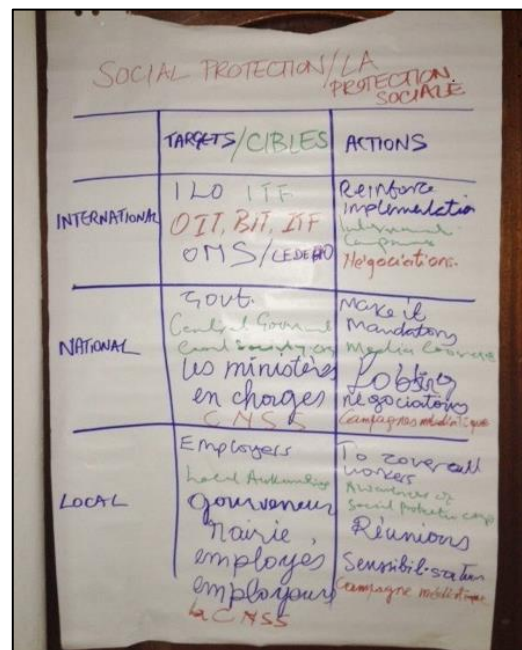 SOCIAL PROTECTION/LA
PROTECTION
SOCIALE
TARGETS/CIBLES
ACTIONS
INTERNATIONAL
ILO ITF
OIT, BIT, ITF
OMS/CEDEAO
Reinforce
implementation
International
Campaigns
Négociations.
NATIONAL
Govt.
Central
les ministères
en charges
CNSS
Make it
Mandatory
Media
Lobbing
négociations
Campagnes médiatique
LOCAL
Employers
Local Authorities
gouverneur
Mairie,
employés
employeurs
la CNSS
To cover all
workers
Awareness
Social protection
Réunions
Sensibilisation
Campagne médiatique